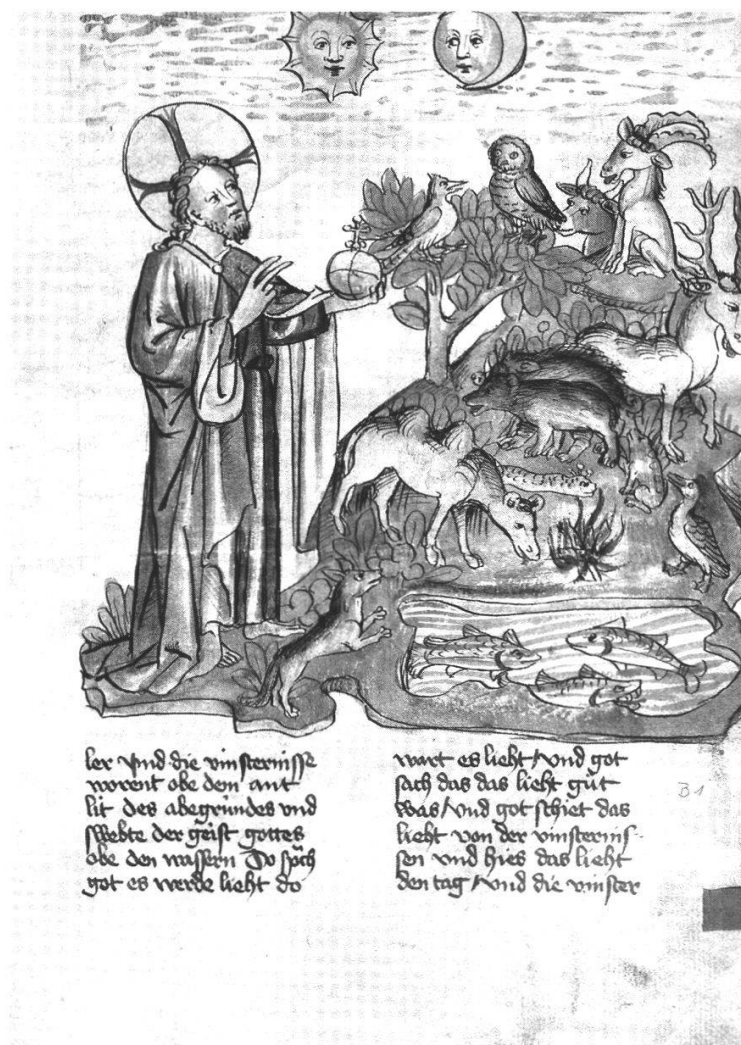 ler Vnd die vinsternisse
worent obe dem ant
lit des abegrundes vnd
swebte der geist gottes
obe den wassern Do sprch
got es werde lieht do
wart es lieht / vnd got
sach das das lieht gůt
was / vnd got schiet das
lieht von der vinsternis-
sen vnd hies das lieht
den tag / vnd die vinster
B1